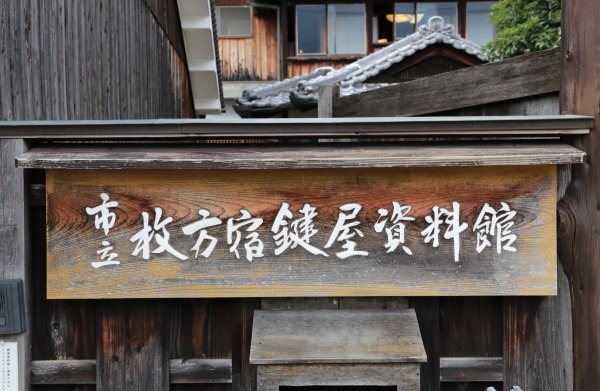 市立枚方宿鍵屋資料館